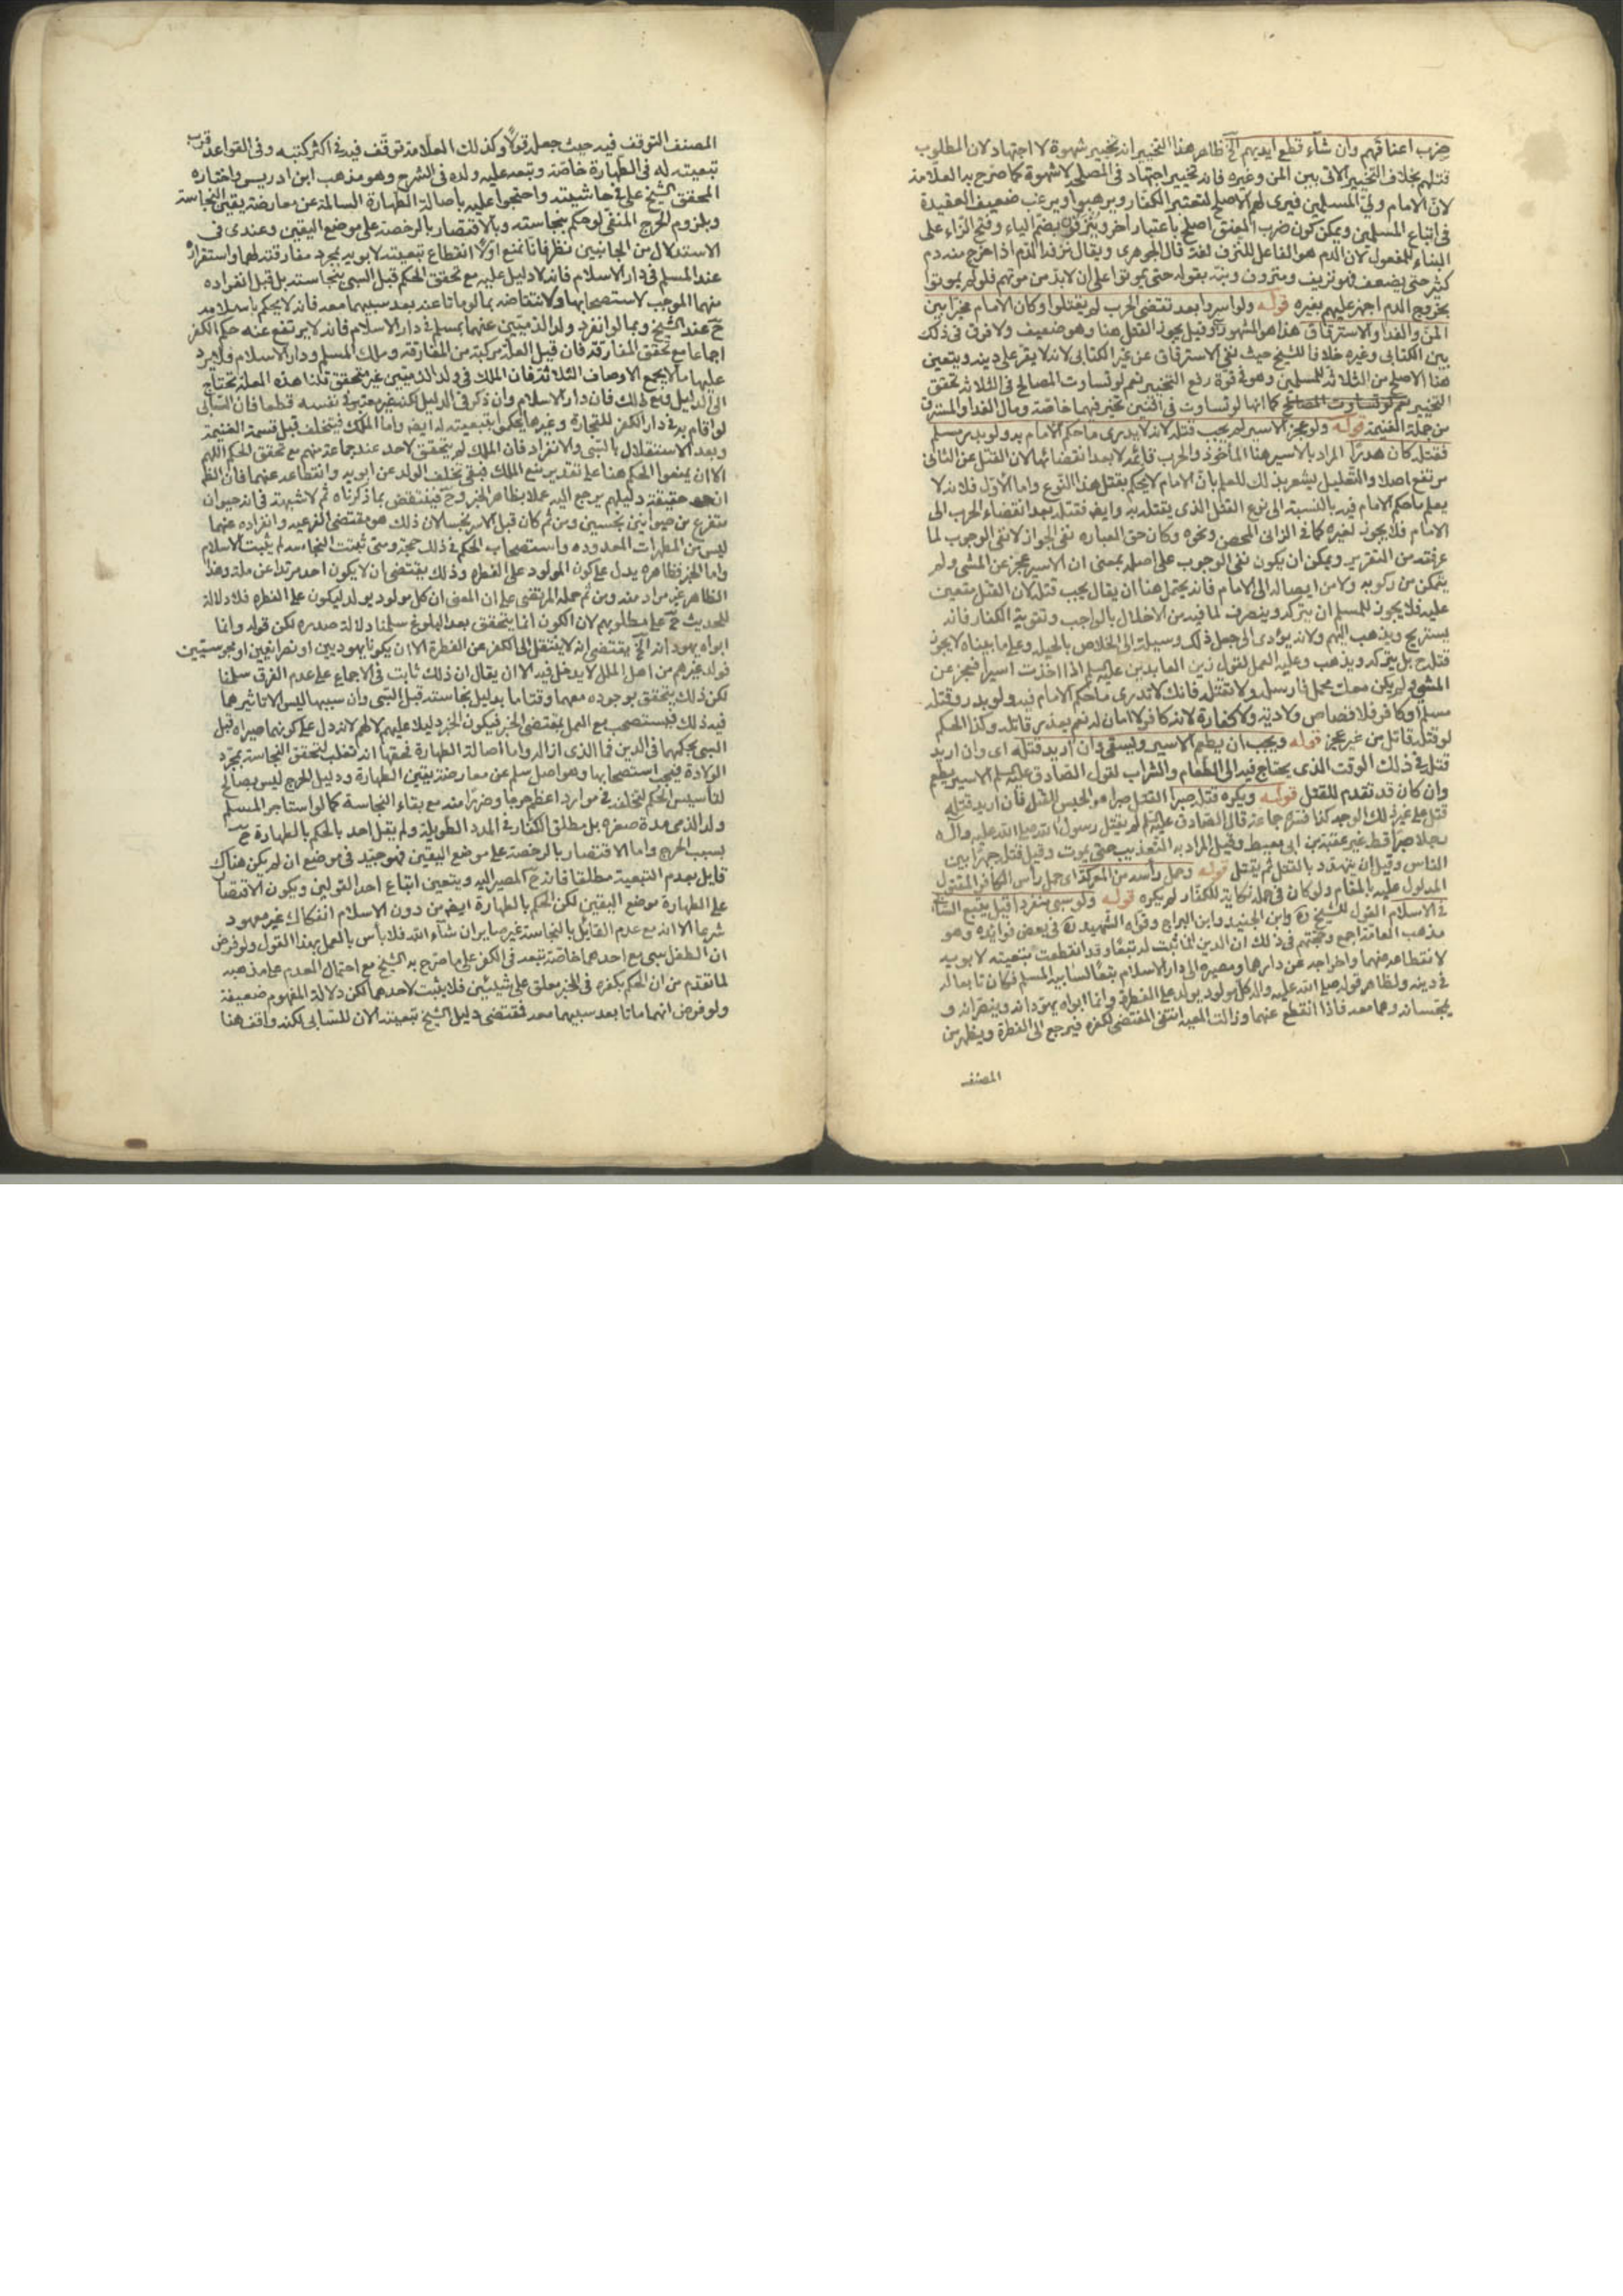 ضرب اعناقهم وان شاء قطع ايديهم الخ ظاهر هذا التخيير انه تخيير شهوة لا اجتهاد لان المطلوب
قتلهم بخلاف التخيير الاتى بين المن وغيره فانه تخيير اجتهاد فى المصلحة لا شهوة كما صرح به العلامة
لان الامام ولى المسلمين فيرى لهم الاصلح لتعتبر الكفار ويرهبوا ويرغب ضعيف العقيدة
فى اتباع المسلمين ويمكن كون ضرب العنق اصلح باعتبار اخر ويُنزَفُ بضم الياء وفتح الزاء على
البناء للمفعول لان الدم هو الفاعل للنزف لغة قال الجوهرى ويقال نزفه الدم اذا خرج منه دم
كثير حتى يضعف فهو نزيف ومنزوف ونبه بقوله حتى يموتوا على ان لا بد من موتهم فلو لم يموتوا
بخروج الدم اجهز عليهم بغيره قوله ولو اسروا بعد تقضى الحرب لم يقتلوا وكان الامام مخيرا بين
المن والفداء والاسترقاق هذا هو المشهور وقيل يجوز القتل هنا وهو ضعيف ولا فرق فى ذلك
بين الكتابى وغيره خلافا للشيخ حيث نفى الاسترقاق عن غير الكتابى لانه لا يقر على دينه ويتعين
هنا الاصلح من الثلاثة للمسلمين وهو فى قوة رفع التخيير نعم لو تساوت المصالح فى الثلاثة تحقق
التخيير كما انها لو تساوت فى اثنين تخير فيهما خاصة ومال الفداء والمسترق
من جملة الغنيمة قوله ولو عجز الاسير لم يجب قتله لانه لا يدرى ما حكم الامام به ولو بدر مسلم
فقتله كان هدرًا المراد بالاسير هنا الماخوذ والحرب قائمة لا بعد انقضائها لان القتل عن الثانى
مرتفع اصلا والتعليل يشعر بذلك للعلم بان الامام لا يحكم بقتل هذا النوع واما الاول فلانه لا
يعلم ما حكم الامام فيه بالنسبة الى نوع القتل الذى يقتله به وايضا فقتله بعد انقضاء الحرب الى
الامام فلا يجوز لغيره كما فى الزانى المحصن ونحوه وكان حق العباره نفى الجواز لا نفى الوجوب لما
عرفته من التقرير ويمكن ان يكون نفى الوجوب على اصله بمعنى ان الاسير عجز عن المشى ولم
يتمكن من ركوبه ولا من ايصاله الى الامام فانه يحتمل هنا ان يقال يجب قتله لان القتل متعين
عليه فلا يجوز للمسلم ان يتركه وينصرف لما فيه من الاخلال بالواجب وتقوية الكفار فانه
يستريح ويذهب اليهم ولانه يؤدى الى جعل ذلك وسيلة الى الخلاص بالحيله وعلى ما بيناه لا يجوز
قتله ح بل يتركه ويذهب وعليه العمل لقول زين العابدين عليه السلم اذا اخذت اسيرا فعجز عن
المشى ولم يكن معك محمل فارسله ولا تقتله فانك لا تدرى ما حكم الامام فيه ولو بدر وقتله
مسلم او كافر فلا قصاص ولا دية ولا كفارة لانه كافر لا امان له نعم يعذر قاتله وكذا الحكم
لو قتله قاتل من غير عجز قوله ويجب ان يطعم الاسير ويسقى وان اريد قتله اى وان اريد
قتله فى ذلك الوقت الذى يحتاج فيه الى الطعام والشراب لقول الصادق عليه السلم الاسير يطعم
وان كان قد تقدم للقتل قوله ويكره قتله صبرا القتل صبرا هو الحبس للقتل فان اريد قتله
قتل على غير ذلك الوجه كذا فسره جماعة قال الصادق عليه السلم لم يقتل رسول الله صلى الله عليه واله
رجلا صبرا قط غير عقبة بن ابى معيط وقيل المراد به التعذيب حتى يموت وقيل قتله جهرا بين
الناس وقيل ان يتهدد بالقتل ثم يقتل قوله وحمل راسه من المعركة اى حمل راس الكافر المقتول
المدلول عليه بالمقام ولو كان فى حمله نكاية للكفار لم يكره قوله ولو سبى منفردا قيل يتبع السابى
فى الاسلام القول للشيخ ره وابن الجنيد وابن البراج وقواه الشهيد ره فى بعض فوائده وهو
مذهب العامة اجمع وحجتهم فى ذلك ان الدين انما ثبت له تبعًا وقد انقطعت تبعيته لابويه
لانقطاعه عنهما واخراجه عن دارهما ومصيره الى دار الاسلام تبعًا لسابيه المسلم فكان تابعا له
فى دينه ولظاهر قوله صلى الله عليه واله كل مولود يولد على الفطرة وانما ابواه يهودانه وينصرانه و
يمجسانه وهما معه فاذا انقطع عنهما وزالت المعية انتفى المقتضى لكفره فيرجع الى الفطرة ويظهر من
المصنف
المصنف التوقف فيه حيث جعله قولًا وكذلك العلامة توقف فيه فى اكثر كتبه وفى القواعد قرب
تبعيته له فى الطهارة خاصة وتبعه عليه ولده فى الشرح وهو مذهب ابن ادريس واختاره
المحقق الشيخ على فى حاشيته واحتجوا عليه باصالة الطهارة السالمة عن معارضة يقين النجاسة
وبلزوم الحرج المنفى لو حكم بنجاسته وبالاقتصار بالرخصة على موضع اليقين وعندى فى
الاستدلال من الجانبين نظر فانا نمنع اولا انقطاع تبعيته لابويه بمجرد مفارقته لهما واستقراره
عند المسلم فى دار الاسلام فانه لا دليل عليه مع تحقق الحكم قبل السبى بنجاسته بل قبل انفراده
منهما الموجب لاستصحابها ولانتقاضه بما لو ماتا عنه بعد سبيهما معه فانه لا يحكم باسلامه
ح عند الشيخ وبما لو انفرد ولد الذميين عنهما بمسلم فى دار الاسلام فانه لا يرتفع عنه حكم الكفر
اجماعا مع تحقق المفارقة فان قيل العلة مركبة من المفارقة وملك المسلم ودار الاسلام فلا يرد
عليها ما لا يجمع الاوصاف الثلاثة فان الملك فى ولد الذميين غير متحقق قلنا هذه العلة تحتاج
الى الدليل ومع ذلك فان دار الاسلام وان ذكر فى الدليل لكنه غير معتبر فى نفسه قطعا فان السابى
لو اقام به فى دار الكفر للتجارة وغيرها يحكموا بتبعيته له ايضا واما الملك فيتخلف قبل قسمة الغنيمة
وبعد الاستقلال بالسبى والانفراد فان الملك لم يتحقق لاحد عند جماعة منهم مع تحقق الحكم اللهم
الا ان يمنعوا الحكم هنا على تقدير منع الملك فبقى تخلف الولد عن ابويه وانقطاعه عنهما فان الظ
انه حقيقة دليلهم يرجع اليه عملا بظاهر الخبر وح فينتقض بما ذكرناه ثم لا شبهة فى انه حيوان
متفرع من حيوانين نجسين ومن ثم كان قبل الاسر نجسا لان ذلك هو مقتضى الفرعيه وانفراده عنهما
ليس من المطهرات المعدوده واستصحاب الحكم فى ذلك حجة ومتى ثبتت النجاسه لم يثبت الاسلام
واما الخبر فظاهره يدل على كون المولود على الفطره وذلك يقتضى ان لا يكون احد مرتدا عن ملة وهذا
الظاهر غير مراد منه ومن ثم حمله المرتضى على ان المعنى ان كل مولود يولد ليكون على الفطره فلا دلالة
للحديث ح على مطلوبهم لان الكون انما يتحقق بعد البلوغ سلمنا دلالة صدره لكن قوله وانما
ابواه يهودانه الخ يقتضى انه لا ينتقل الى الكفر عن الفطرة الا ان يكونا يهوديين او نصرانيين او مجوسيين
فولد غيرهم من اهل الملل لا يدخل فيه الا ان يقال ان ذلك ثابت فى الاجماع على عدم الفرق سلمنا
لكن ذلك يتحقق بوجوده معهما وقتا ما بدليل نجاسته قبل السبى وان سببها ليس الا تاثيرهما
فيه ذلك فيستصحب مع العمل بمقتضى الخبر فيكون الخبر دليلا عليهم لا لهم لانه دل على كونهما صيراه قبل
السبى بحكمهما فى الدين فما الذى ازاله واما اصالة الطهارة فحقها انه انقلب لتحقق النجاسة بمجرد
الولادة فيجب استصحابها وهو اصل سلم عن معارضة يقين الطهارة ودليل الحرج ليس بصالح
لتاسيس الحكم لتخلفه فى موارد اعظم حرجا وضررا منه مع بقاء النجاسة كما لو استاجر المسلم
ولد الذمى مدة صغره بل مطلق الكفار فى المدد الطويلة ولم يقل احد بالحكم بالطهارة ح
بسبب الحرج واما الاقتصار بالرخصة على موضع اليقين فهو جيد فى موضع ان لم يكن هناك
قايل بعدم التبعية مطلقا فانه ح المصير اليه ويتعين اتباع احد القولين ويكون الاقتصار
على الطهارة موضع اليقين لكن الحكم بالطهارة ايضا من دون الاسلام انفكاك غير معهود
شرعا الا انه مع عدم القائل بالنجاسة غير صاير ان شاء الله فلا باس بالعمل بهذا القول ولو فرض
ان الطفل سبى مع احدهما خاصة تبعه فى الكفر على ما صرح به الشيخ مع احتمال العدم على مذهبه
لما تقدم من ان الحكم بكفره فى الخبر معلق على شيئين فلا يثبت لاحدهما لكن دلالة المفهوم ضعيفة
ولو فرض انهما ماتا بعد سبيهما معه فمقتضى دليل الشيخ تبعيته الان للسابى لكنه وافق هنا